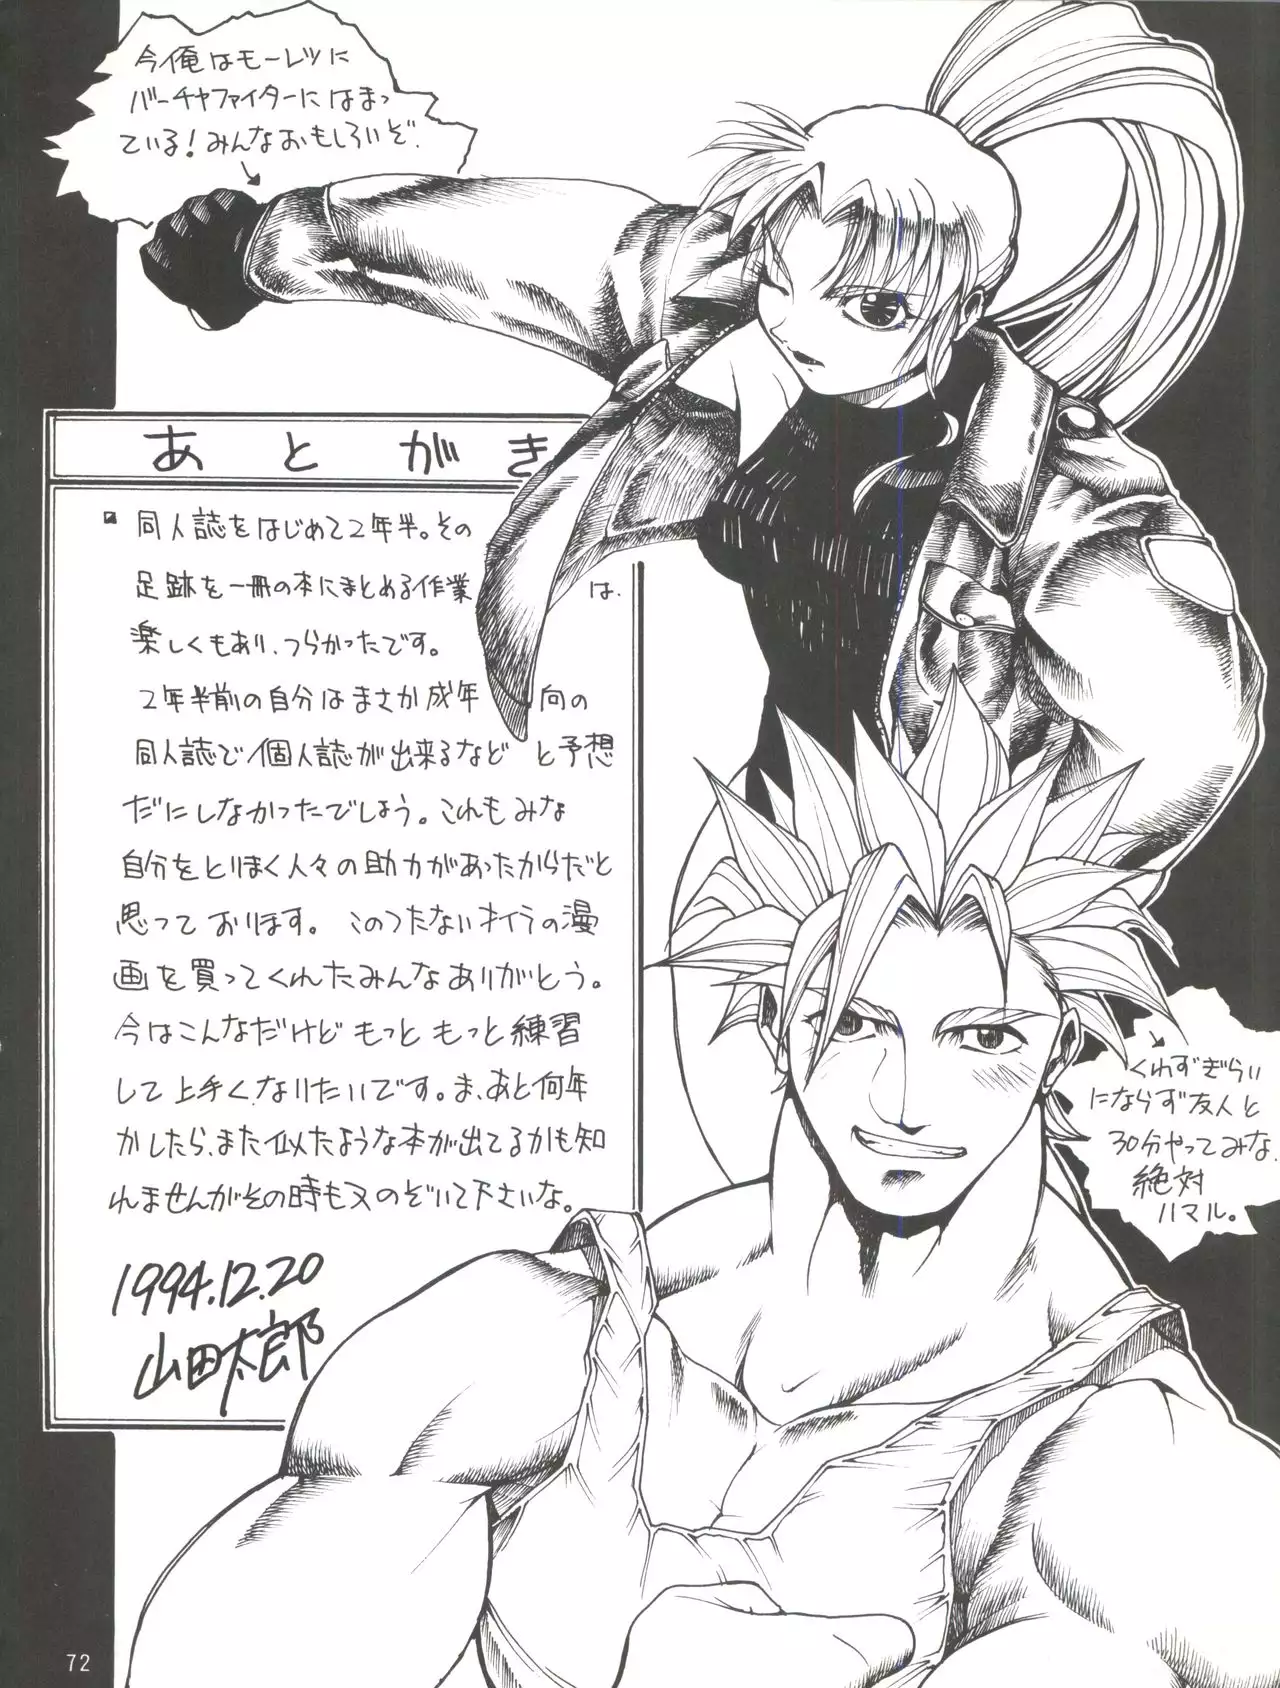 今俺はモーレツに
バーチャファイターにはまっ
ている!みんなおもしろいぞ.
あとがき
同人誌をはじめて2年半。その
足跡を一冊の本にまとめる作業は、
楽しくもあり、つらかったです。
2年半前の自分はまさか成年向の
同人誌で個人誌が出来るなどと予想
だにしなかったでしょう。これもみな
自分をとりまく人々の助力があったからだと
思っております。このつたないオイラの漫
画を買ってくれたみんなありがとう。
今はこんなだけどもっともっと練習
して上手くなりたいです。ま、あと何年
かしたら、また似たような本が出てるかも知
れませんがその時も又のぞいて下さいな。
1994.12.20
山田太郎
くわずぎらい
にならず友人と
30分やってみな.
絶対
ハマル。
72